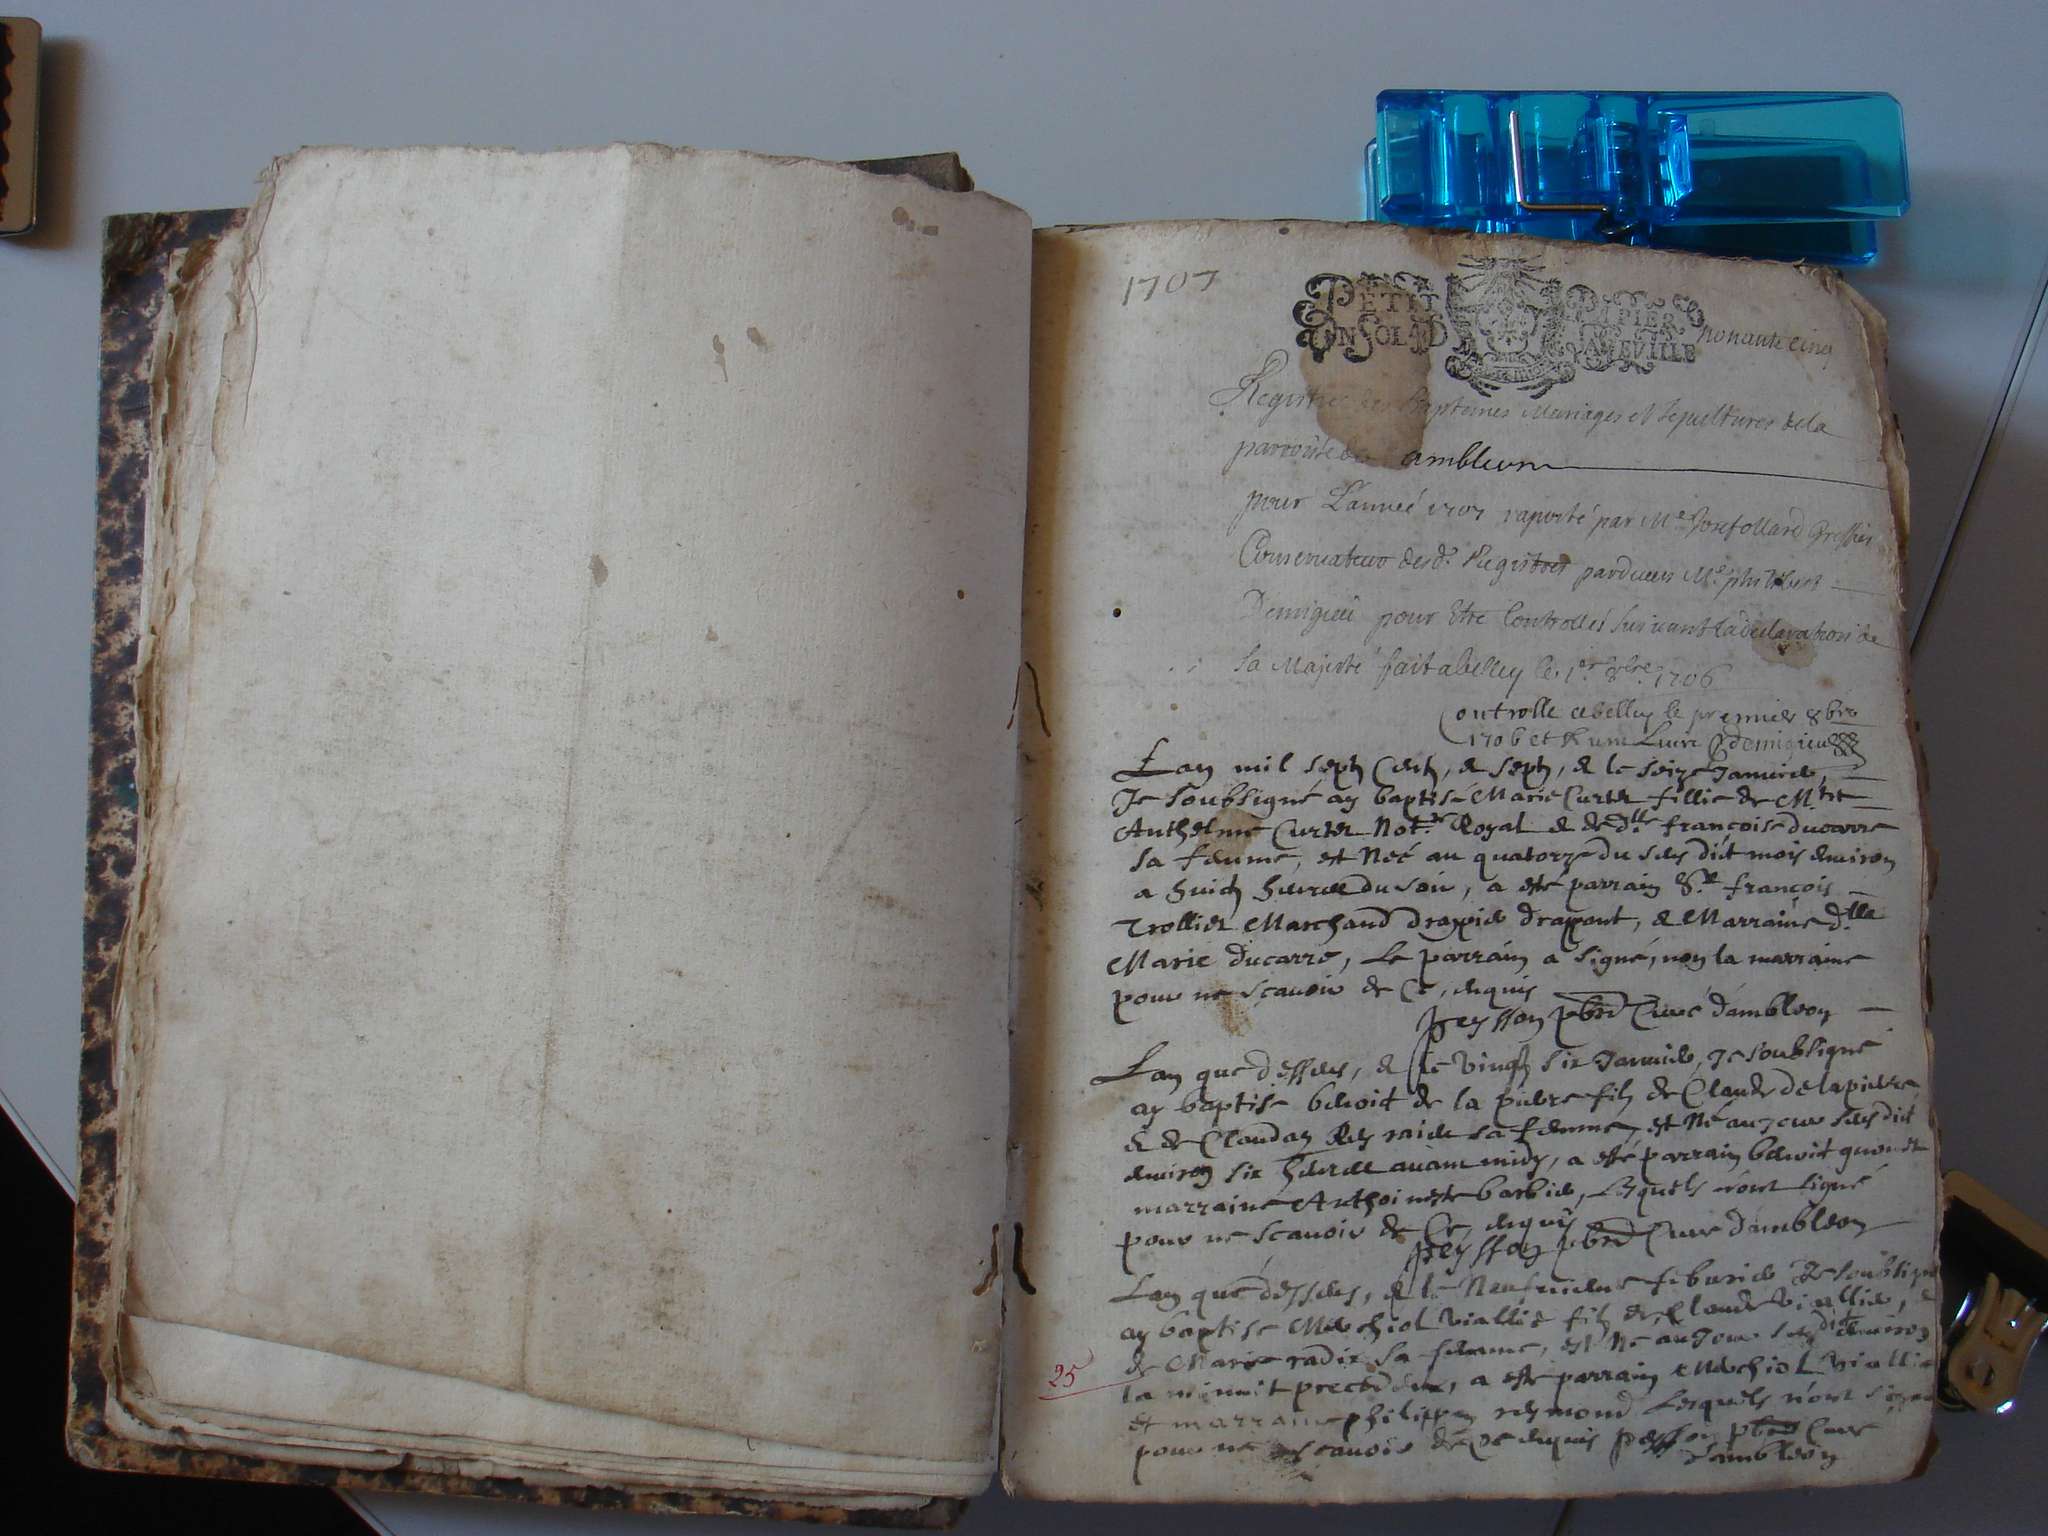 1707
PETIT PAPIER
UN SOL DE LA FEUILLE
nonante cinq
Registre des Baptemes Mariages et Sepultures de la
parroisse de ambleon
pour L'anneé 1707 raporté par Me Greffier
Conservateur desd. Registres par devers Me philibert
Demigieu pour Etre Controlleé suivant la declaration de
Sa Majesté fait a belley le 1er 8bre 1706
Controlle a belley le premier 8bre
1706 et R une Livre Demigieu
Lan mil sept Cent, & sept, & le seize Janvier,
Je soubsigné ay baptisé Marie Curtet fillie de Mtre
Anthelme Curtet Not.re Royal & de d.lle françoise ducarre
sa femme, est Neé au quatorze du sus dit mois environ
a huict heures du soir, a esté parrain S.r françois
Trollier Marchand drapier drapant, & Marraine d.lle
Marie ducarre, Le parrain a signé, non la marraine
pour ne scavoir de Ce, enquis
peysson pbre Curé d'ambleon
Lan que dessus, & le vingt six Janvier, Je soubsigné
ay baptise benoit de la pierre filz de Claude de lapierre
& de Claudaz sa femme, est Né au jour sus dit
environ six heures avant midy, a esté parrain benoit
marraine Anthoinette barbier, Lesquels n'ont signé
pour ne scavoir de Ce, enquis
peysson pbre Curé d'ambleon
Lan que dessus, & le Neufvieme febvrier Je soubsigné
ay baptise Melchiol viallie filz de Claude viallie, &
de Marie radix sa femme, est Né au Jour sus dit environ
la minuit precedente, a esté parrain Melchiol viallie
25
et marraine philippaz reymond Lesquels n'ont signé
pour ne scavoir de Ce enquis peysson pbre Curé
d'ambleon